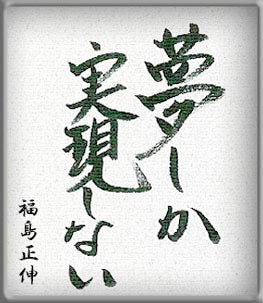 夢しか
実現しない
福島正伸